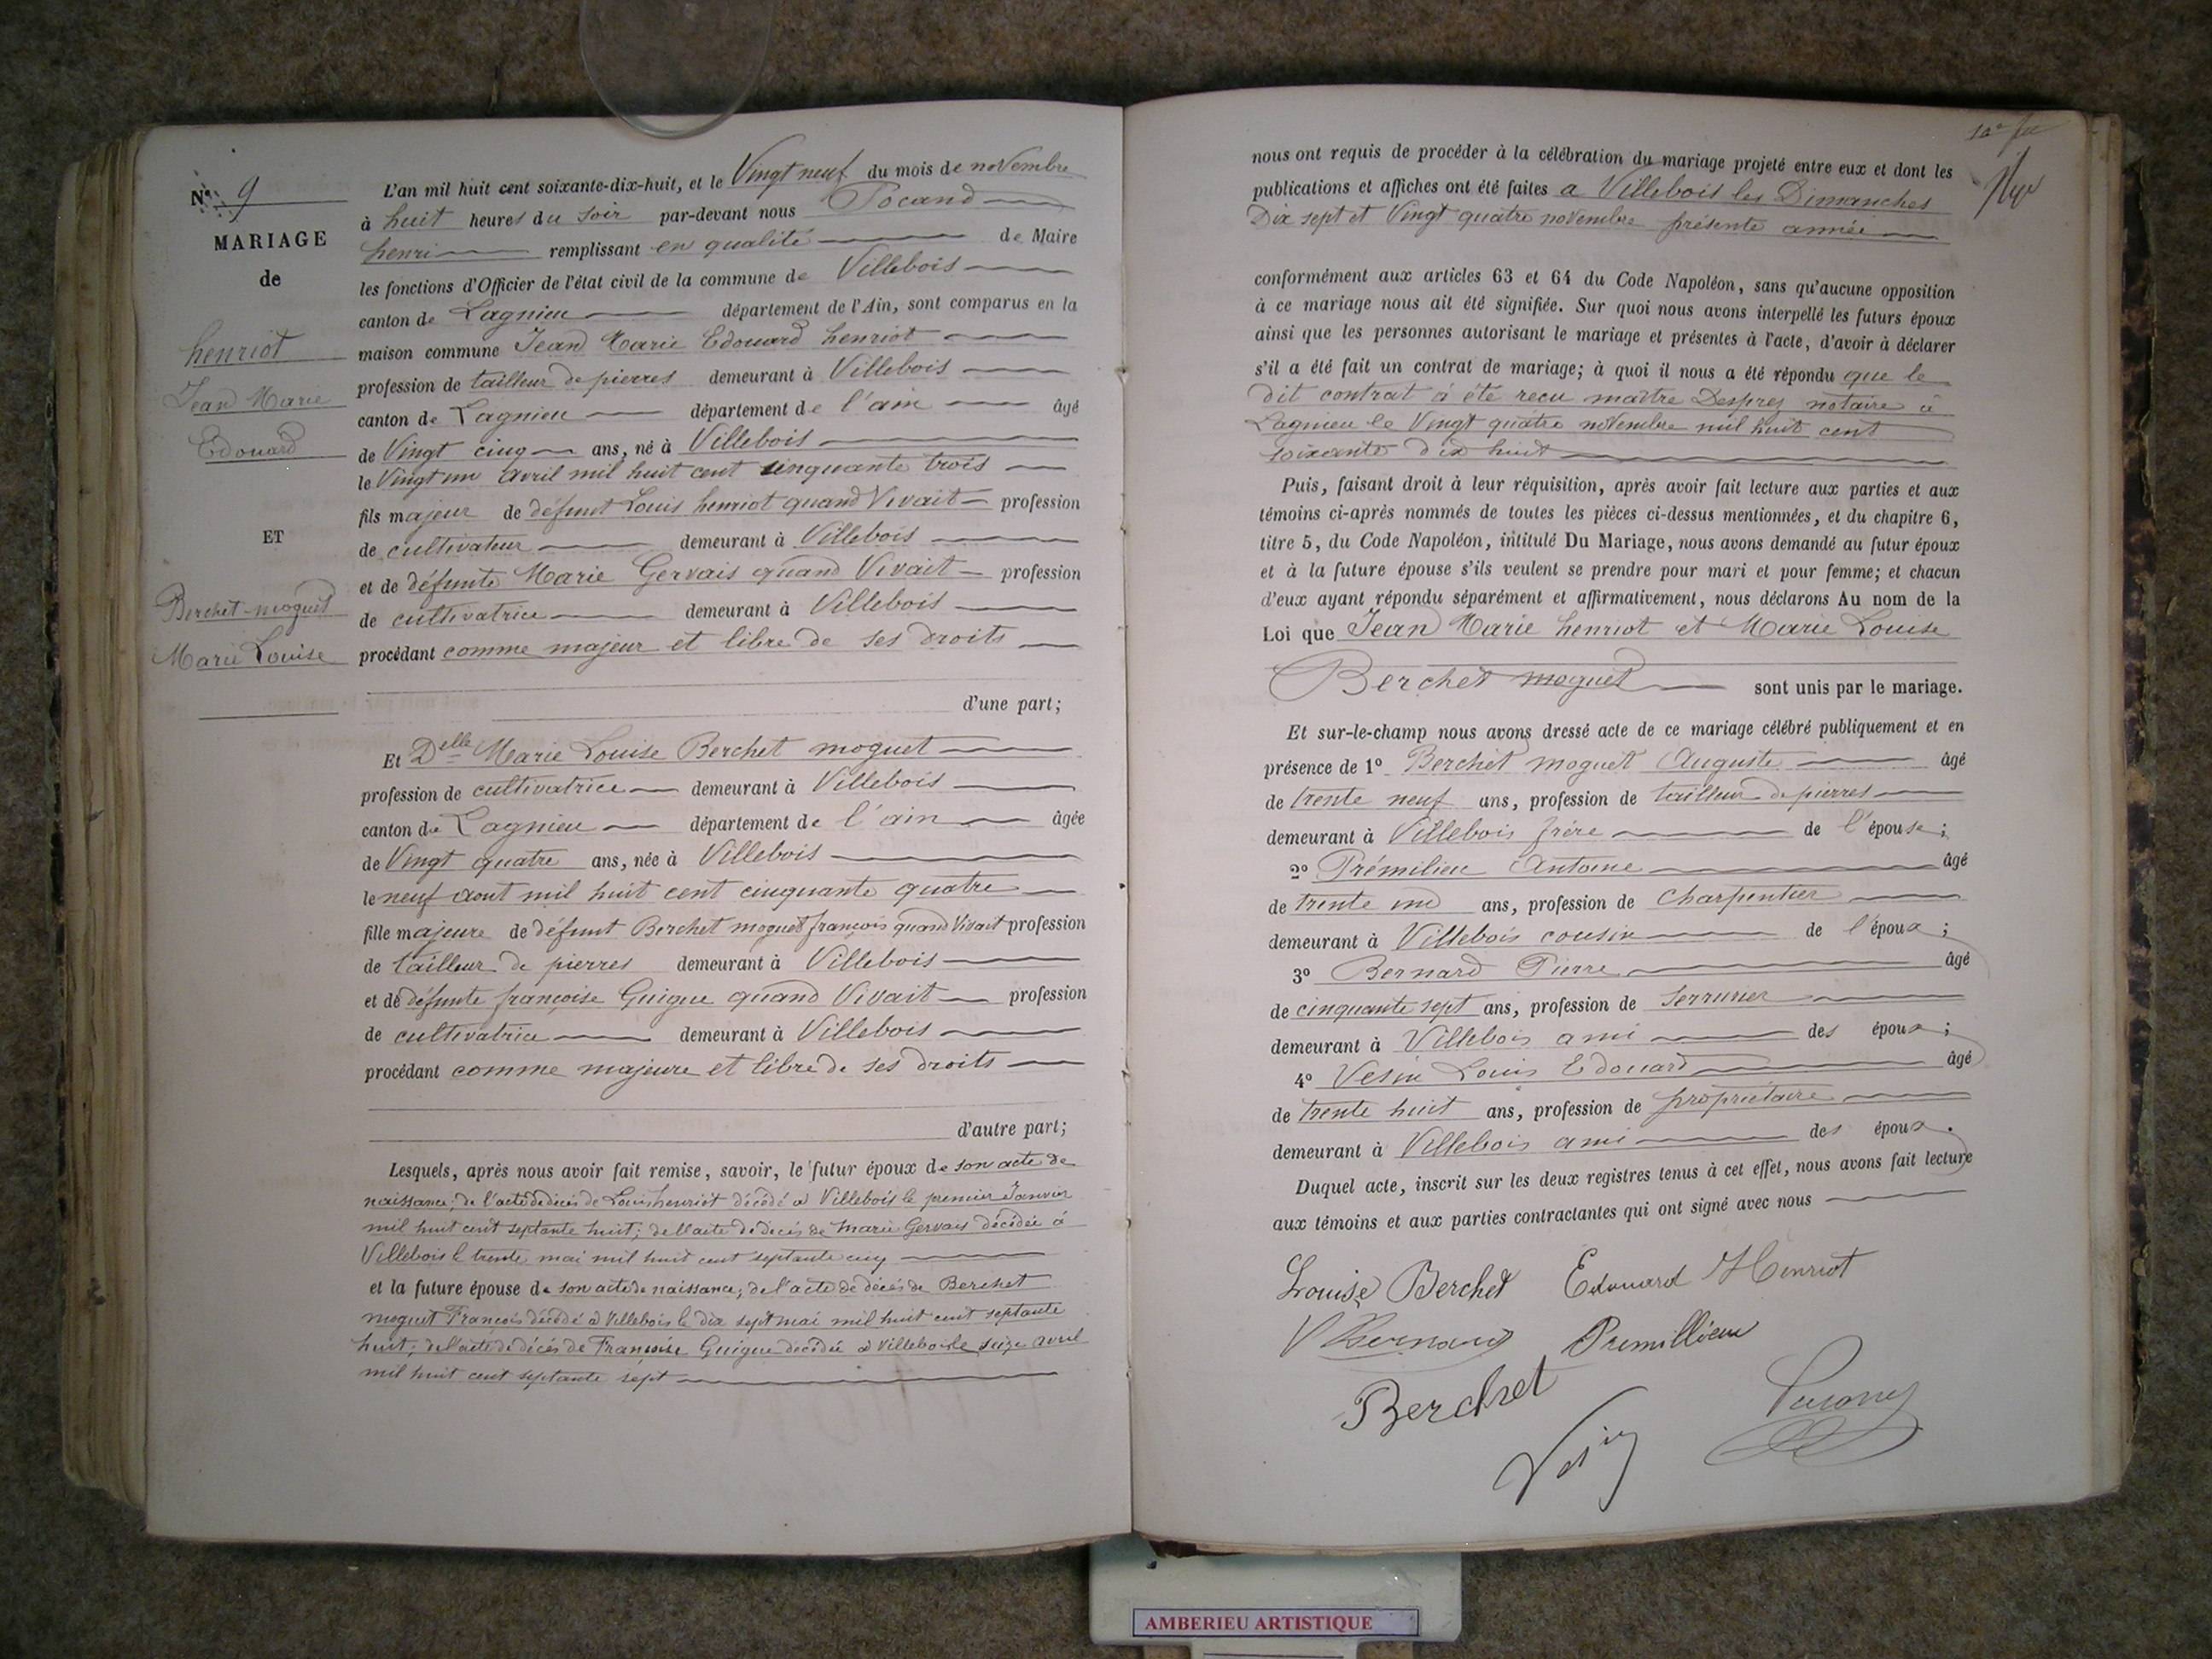 N° 9
MARIAGE
de
henriot
Jean Marie
Edouard
ET
Berchet-moguet
Marie Louise
L'an mil huit cent soixante-dix-huit, et le Vingt neuf du mois de novembre
à huit heures du soir par-devant nous Pocand
henri remplissant en qualité de Maire
les fonctions d'Officier de l'état civil de la commune de Villebois
canton de Lagnieu département de l'Ain, sont comparus en la
maison commune Jean Marie Edouard henriot
profession de tailleur de pierres demeurant à Villebois
canton de Lagnieu département de l'ain âgé
de Vingt cinq ans, né à Villebois
le Vingt un avril mil huit cent cinquante trois
fils majeur de défunt Louis henriot quand Vivait profession
de cultivateur demeurant à Villebois
et de défunte Marie Gervais quand Vivait profession
de cultivatrice demeurant à Villebois
procédant comme majeur et libre de ses droits
d'une part;
Et Delle Marie Louise Berchet moguet
profession de cultivatrice demeurant à Villebois
canton de Lagnieu département de l'ain âgée
de Vingt quatre ans, née à Villebois
le neuf aout mil huit cent cinquante quatre
fille majeure de défunt Berchet moguet françois quand Vivait profession
de tailleur de pierres demeurant à Villebois
et de défunte françoise Guigue quand Vivait profession
de cultivatrice demeurant à Villebois
procédant comme majeure et libre de ses droits
d'autre part;
Lesquels, après nous avoir fait remise, savoir, le futur époux de son acte de
naissance; de l'acte de décès de Louis henriot décédé à Villebois le premier Janvier
mil huit cent septante huit; de l'acte de décès de Marie Gervais décédée à
Villebois le trente mai mil huit cent septante cinq
et la future épouse de son acte de naissance; de l'acte de décès de Berchet
moguet François décédé à Villebois le dix sept mai mil huit cent septante
huit; de l'acte de décès de Françoise Guigue décédée à Villebois le seize avril
mil huit cent septante sept
nous ont requis de procéder à la célébration du mariage projeté entre eux et dont les
publications et affiches ont été faites a Villebois les Dimanches
Dix sept et Vingt quatre novembre présente année
conformément aux articles 63 et 64 du Code Napoléon, sans qu'aucune opposition
à ce mariage nous ait été signifiée. Sur quoi nous avons interpellé les futurs époux
ainsi que les personnes autorisant le mariage et présentes à l'acte, d'avoir à déclarer
s'il a été fait un contrat de mariage; à quoi il nous a été répondu que le
dit contrat à été recu maître Desprez notaire à
Lagnieu le Vingt quatre novembre mil huit cent
soixante dix huit
Puis, faisant droit à leur réquisition, après avoir fait lecture aux parties et aux
témoins ci-après nommés de toutes les pièces ci-dessus mentionnées, et du chapitre 6,
titre 5, du Code Napoléon, intitulé Du Mariage, nous avons demandé au futur époux
et à la future épouse s'ils veulent se prendre pour mari et pour femme; et chacun
d'eux ayant répondu séparément et affirmativement, nous déclarons Au nom de la
Loi que Jean Marie henriot et Marie Louise
Berchet moguet sont unis par le mariage.
Et sur-le-champ nous avons dressé acte de ce mariage célébré publiquement et en
présence de 1° Berchet moguet Auguste âgé
de trente neuf ans, profession de tailleur de pierres
demeurant à Villebois frère de l'épouse;
2° Prémilieu Antoine âgé
de trente un ans, profession de Charpentier
demeurant à Villebois cousin de l'époux;
3° Bernard Pierre âgé
de cinquante sept ans, profession de Serrurier
demeurant à Villebois ami des époux;
4° Vesin Louis Edouard âgé
de trente huit ans, profession de propriétaire
demeurant à Villebois ami des époux.
Duquel acte, inscrit sur les deux registres tenus à cet effet, nous avons fait lecture
aux témoins et aux parties contractantes qui ont signé avec nous
Louise Berchet Edouard Henriot
Bernard Premillieu
Berchet
Vesin
AMBERIEU ARTISTIQUE